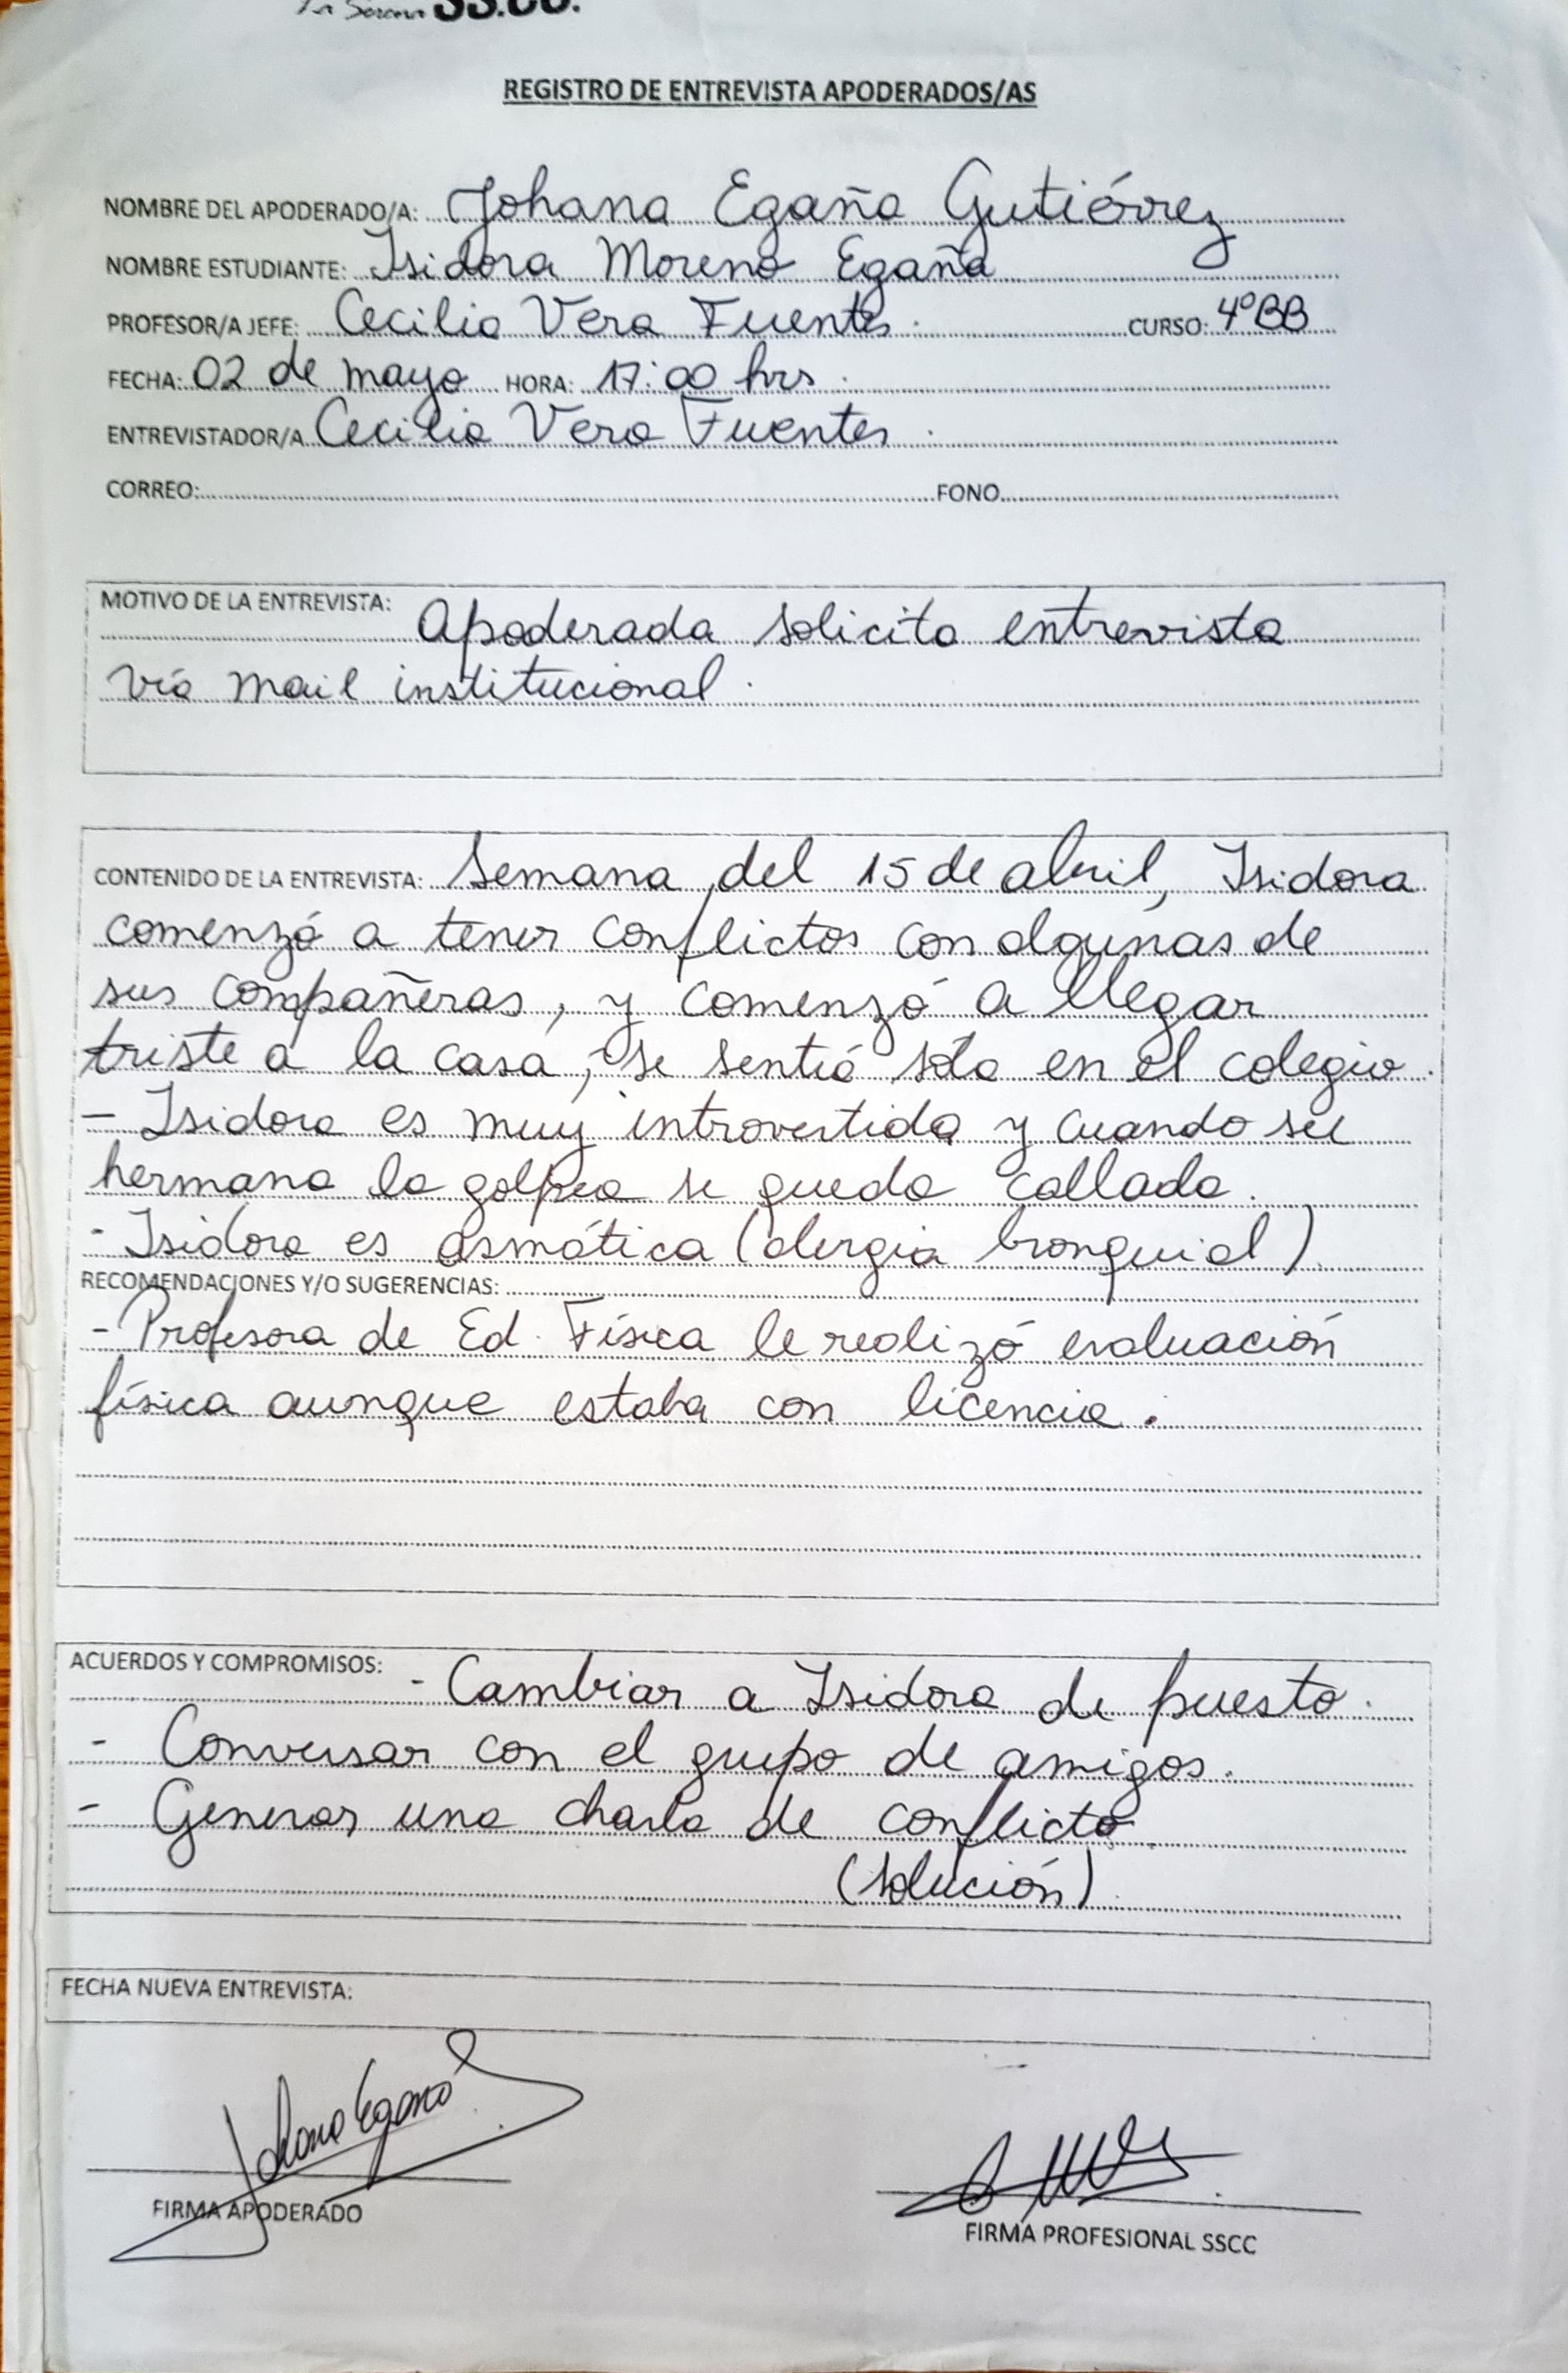 La Serena SS.CC.
REGISTRO DE ENTREVISTA APODERADOS/AS
NOMBRE DEL APODERADO/A: Johana Egaña Gutiérrez
NOMBRE ESTUDIANTE: Isidora Moreno Egaña
PROFESOR/A JEFE: Cecilia Vera Fuentes. CURSO: 4°BB
FECHA: 02 de mayo HORA: 17:00 hrs.
ENTREVISTADOR/A Cecilia Vera Fuentes.
CORREO: FONO
MOTIVO DE LA ENTREVISTA: Apoderada solicita entrevista
vía mail institucional.
CONTENIDO DE LA ENTREVISTA: Semana del 15 de abril, Isidora
comenzó a tener conflictos con algunas de
sus compañeras, y comenzó a llegar
triste a la casa, se sentió sola en el colegio.
- Isidora es muy introvertida y cuando su
hermana la golpea se queda callada.
- Isidora es asmática (alergia bronquial)
RECOMENDACIONES Y/O SUGERENCIAS:
- Profesora de Ed. Física le realizó evaluación
física aunque estaba con licencia.
ACUERDOS Y COMPROMISOS: - Cambiar a Isidora de puesto.
- Conversar con el grupo de amigos.
- Generar una charla de conflicto
(solución)
FECHA NUEVA ENTREVISTA:
Johana Egaña
FIRMA APODERADO
FIRMA PROFESIONAL SSCC